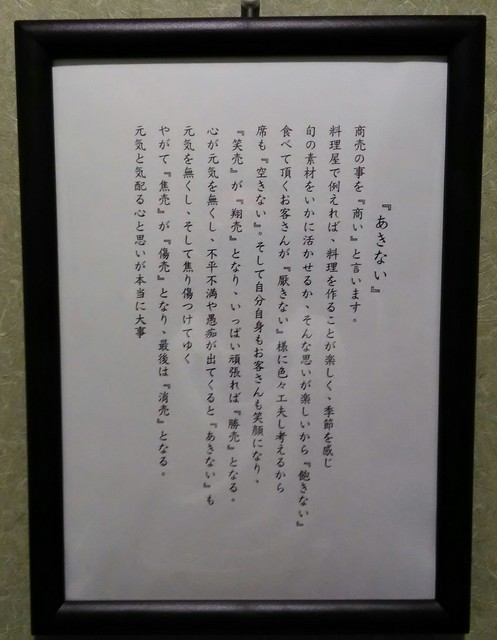 『あきない』
商売の事を『商い』と言います。
料理屋で例えれば、料理を作ることが楽しく、季節を感じ
旬の素材をいかに活かせるか、そんな思いが楽しいから『飽きない』
食べて頂くお客さんが『厭きない』様に色々工夫し考えるから
席も『空きない』。そして自分自身もお客さんも笑顔になり、
『笑売』が『翔売』となり、いっぱい頑張れば『勝売』となる。
心が元気を無くし、不平不満や愚痴が出てくると『あきない』も
元気を無くし、そして焦り傷つけてゆく
やがて『焦売』が『傷売』となり、最後は『消売』となる。
元気と気配る心と思いが本当に大事